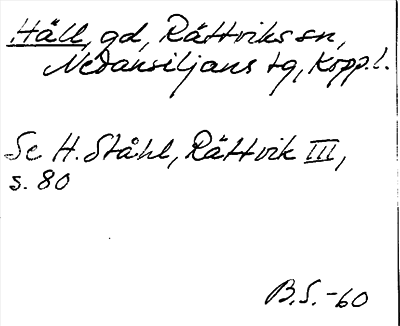 Häll, gd, Rättviks sn,
Nedansiljans tg, Kopp.l.
Se H. Ståhl, Rättvik III,
s. 80
B.S. -60